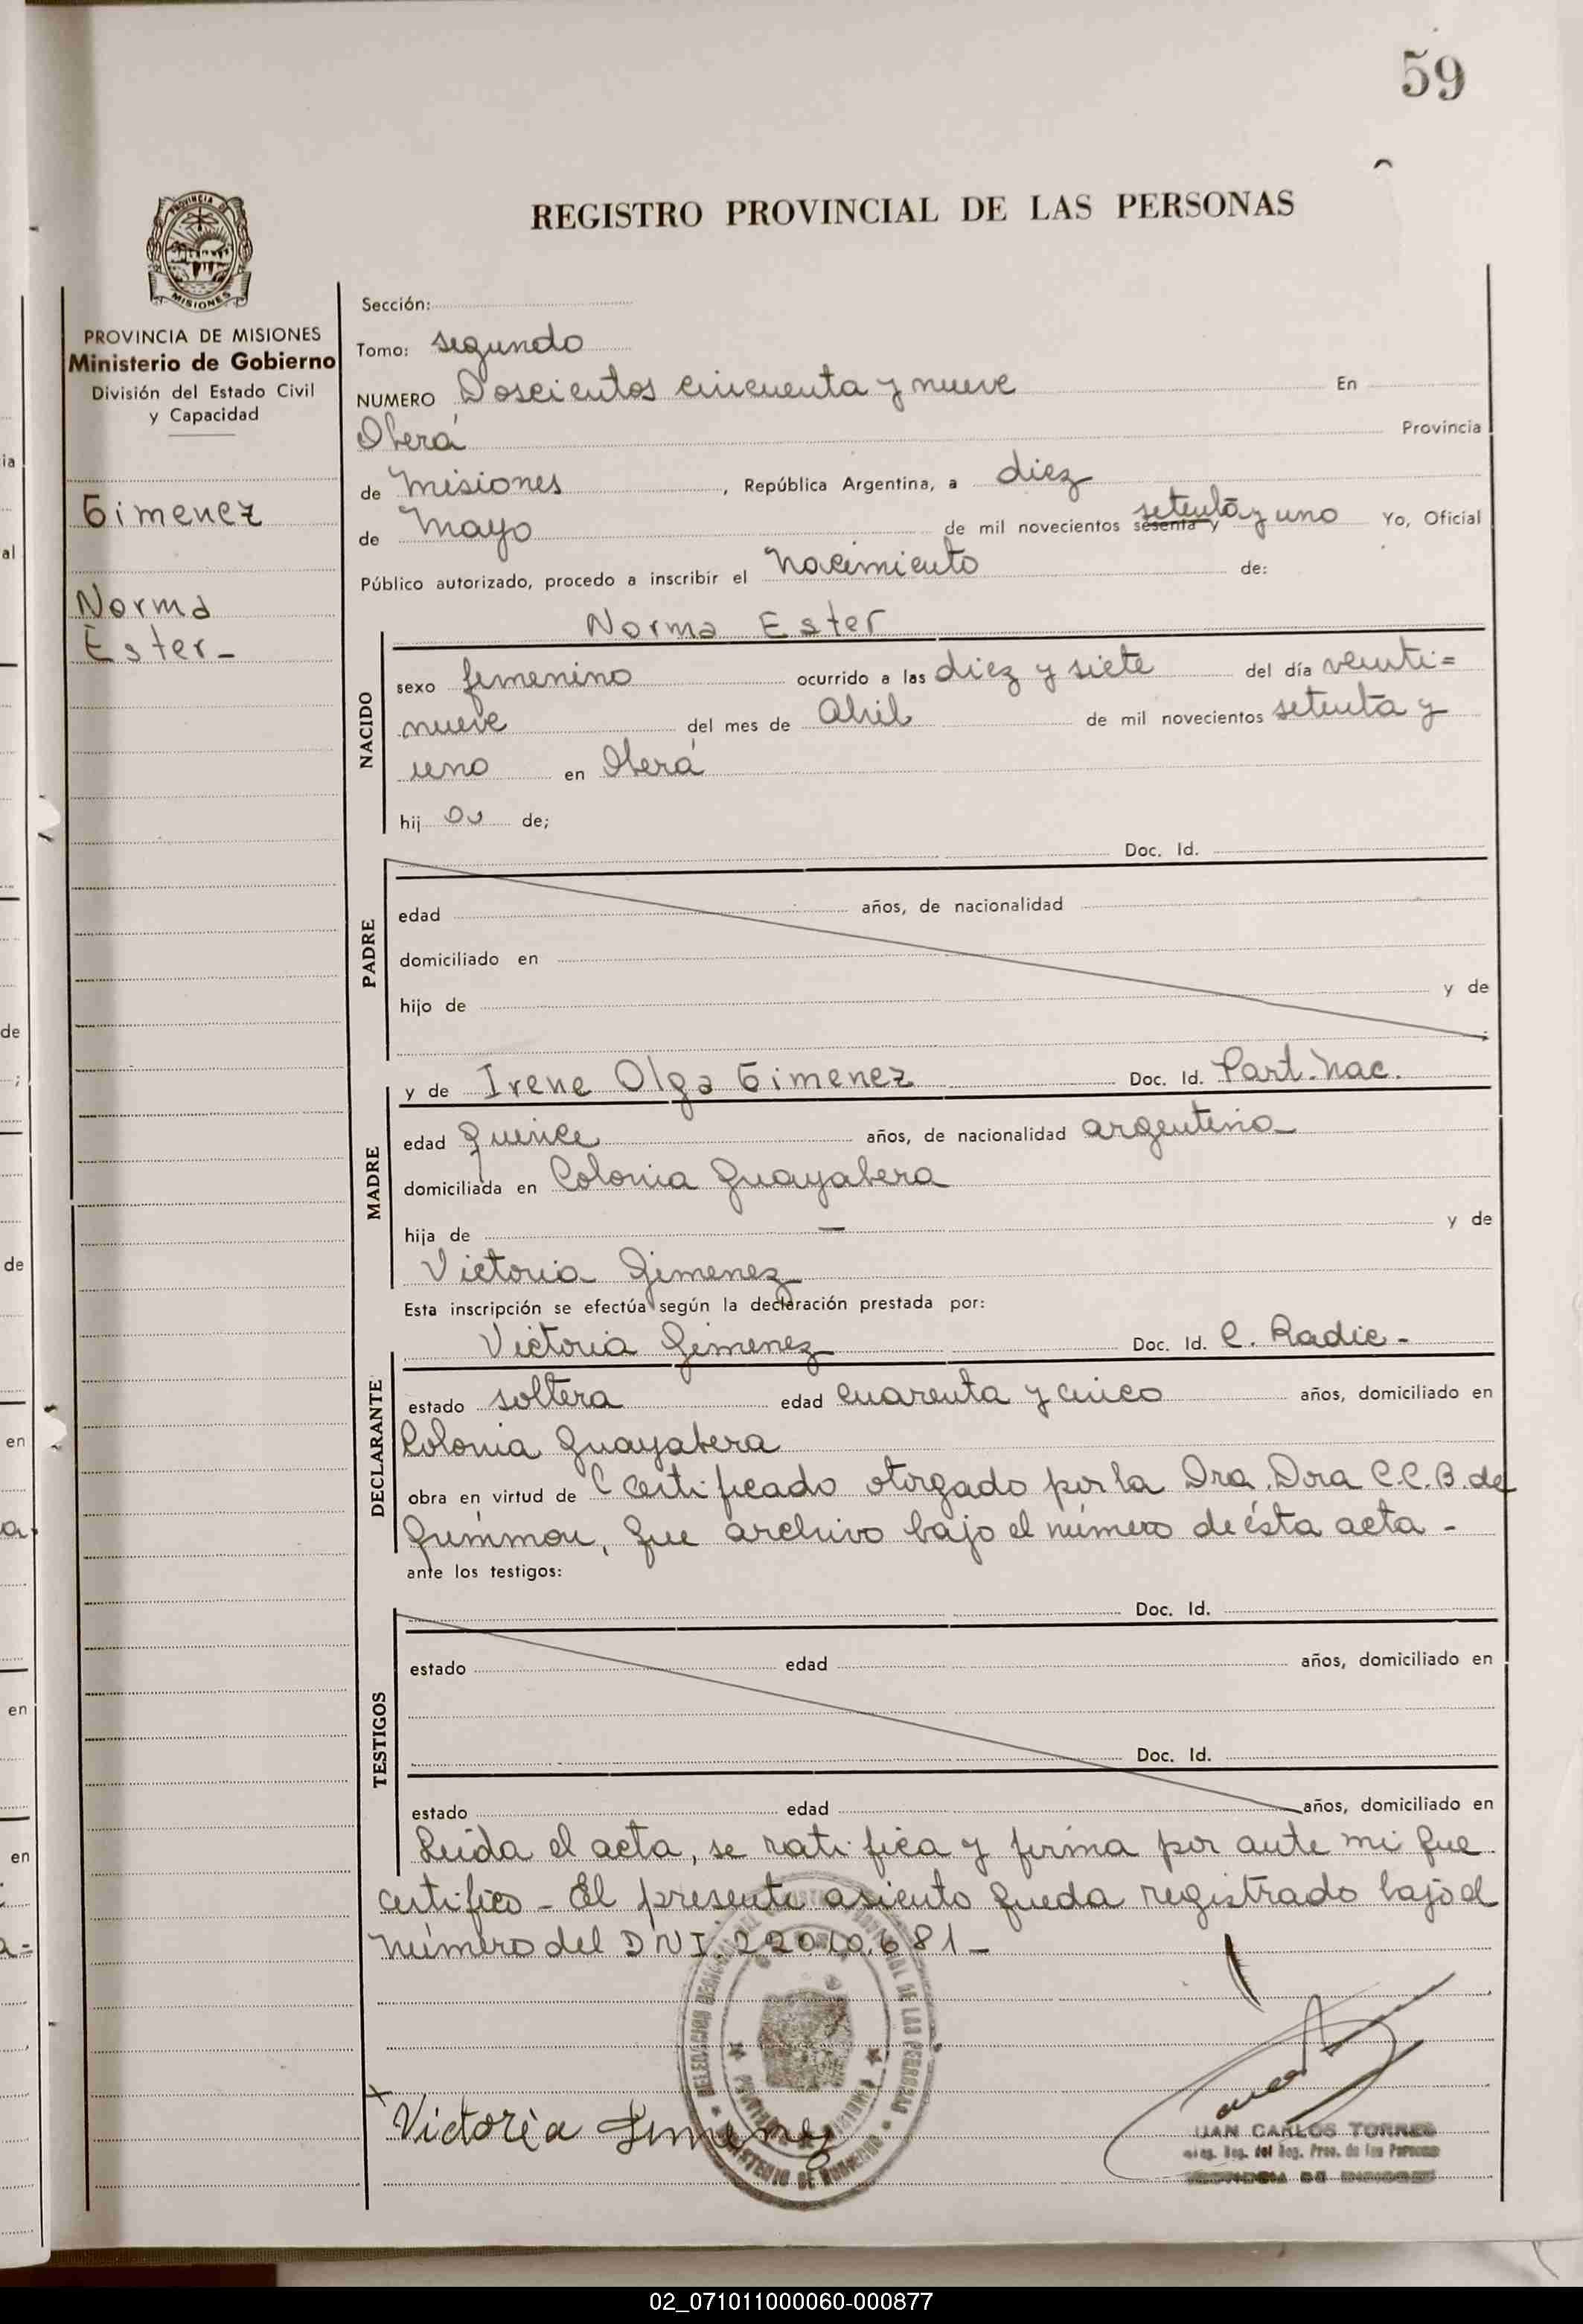 59
REGISTRO PROVINCIAL DE LAS PERSONAS
PROVINCIA DE MISIONES
Ministerio de Gobierno
División del Estado Civil
y Capacidad
Gimenez
Norma
Ester-
Sección:
Tomo: segundo
NUMERO Doscientos cincuenta y nueve En
Oberá Provincia
de Misiones, República Argentina, a diez
de Mayo de mil novecientos sesenta y setenta y uno Yo, Oficial
Público autorizado, procedo a inscribir el Nacimiento de:
Norma Ester
NACIDO
sexo femenino ocurrido a las diez y siete del día veinti=
nueve del mes de Abril de mil novecientos setenta y
uno en Oberá
hij de;
PADRE
Doc. Id.
edad años, de nacionalidad
domiciliado en
hijo de y de
MADRE
y de Irene Olga Gimenez Doc. Id. Part. Nac.
edad quince años, de nacionalidad argentina
domiciliada en Colonia Guayabera
hija de — y de
Victoria Gimenez
Esta inscripción se efectúa según la declaración prestada por:
DECLARANTE
Victoria Gimenez Doc. Id. C. Radic-
estado soltera edad cuarenta y cinco años, domiciliado en
Colonia Guayabera
obra en virtud de Certificado otorgado por la Dra. Dora C.C.B. de
que archivo bajo el número de ésta acta -
ante los testigos:
TESTIGOS
Doc. Id.
estado edad años, domiciliado en
Doc. Id.
estado edad años, domiciliado en
Leida el acta, se ratifica y firma por ante mi que
certifico - El presente asiento queda registrado bajo el
número del DNI. 22010.681-
Victoria Jimenez
JUAN CARLOS TORRES
del Reg. Prov. de las Personas
02_071011000060-000877